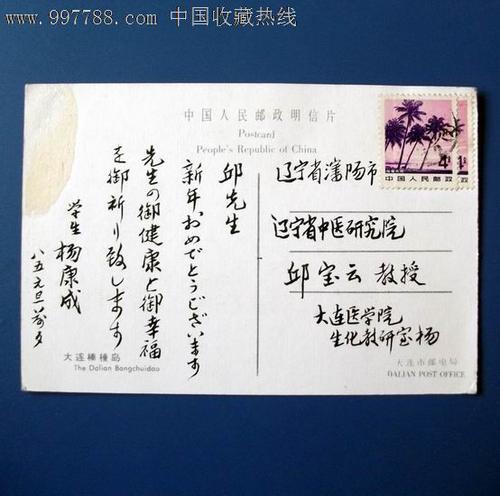 www.997788.com 中国收藏热线
中国人民邮政明信片
Postcard
People's Republic of China
4分
中国人民邮政
辽宁省瀋阳市
辽宁省中医研究院
邱宝云 教授
大连医学院
生化教研室杨
邱先生
新年おめでとうございます
先生の御健康と御幸福
を御祈り致します
学生 杨康成
八五元旦前夕
大连棒棰岛
The Dalian Bangchuidao
大连市邮电局
DALIAN POST OFFICE